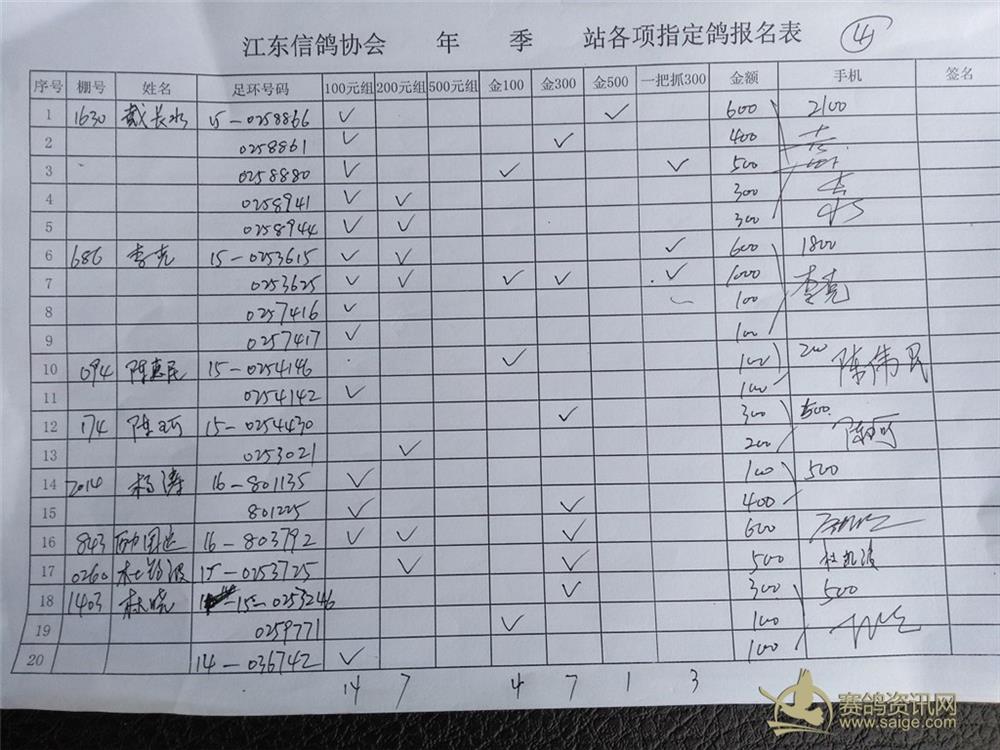 江东信鸽协会 年 季 站各项指定鸽报名表 4
序号 棚号 姓名 足环号码 100元组 200元组 500元组 金100 金300 金500 一把抓300 金额 手机 签名
1 1630 戴长水 15-0258866 ✓ ✓ 600 2100
2 0258861 ✓ ✓ 400
3 0258880 ✓ ✓ ✓ 500
4 0258941 ✓ ✓ 300
5 0258944 ✓ ✓ 300
6 686 李克 15-0253615 ✓ ✓ ✓ 600 1800
7 0253625 ✓ ✓ ✓ ✓ ✓ 1000 李克
8 0257416 ✓ 100
9 0257417 ✓ 100
10 094 陈惠民 15-0254146 ✓ 100 200 陈伟民
11 0254142 ✓ 100
12 174 陈可 15-0254430 ✓ 300 500
13 0253021 ✓ 200
14 2014 杨涛 16-801135 ✓ 100 500
15 801225 ✓ ✓ 400
16 843 16-803792 ✓ ✓ ✓ 600
17 0260 15-0253725 ✓ ✓ 500
18 1403 林晓 15-0253246 ✓ 300 500
19 0259771 ✓ 100
20 14-036742 ✓ 100
14 7 4 7 1 3
赛鸽资讯网
www.saige.com